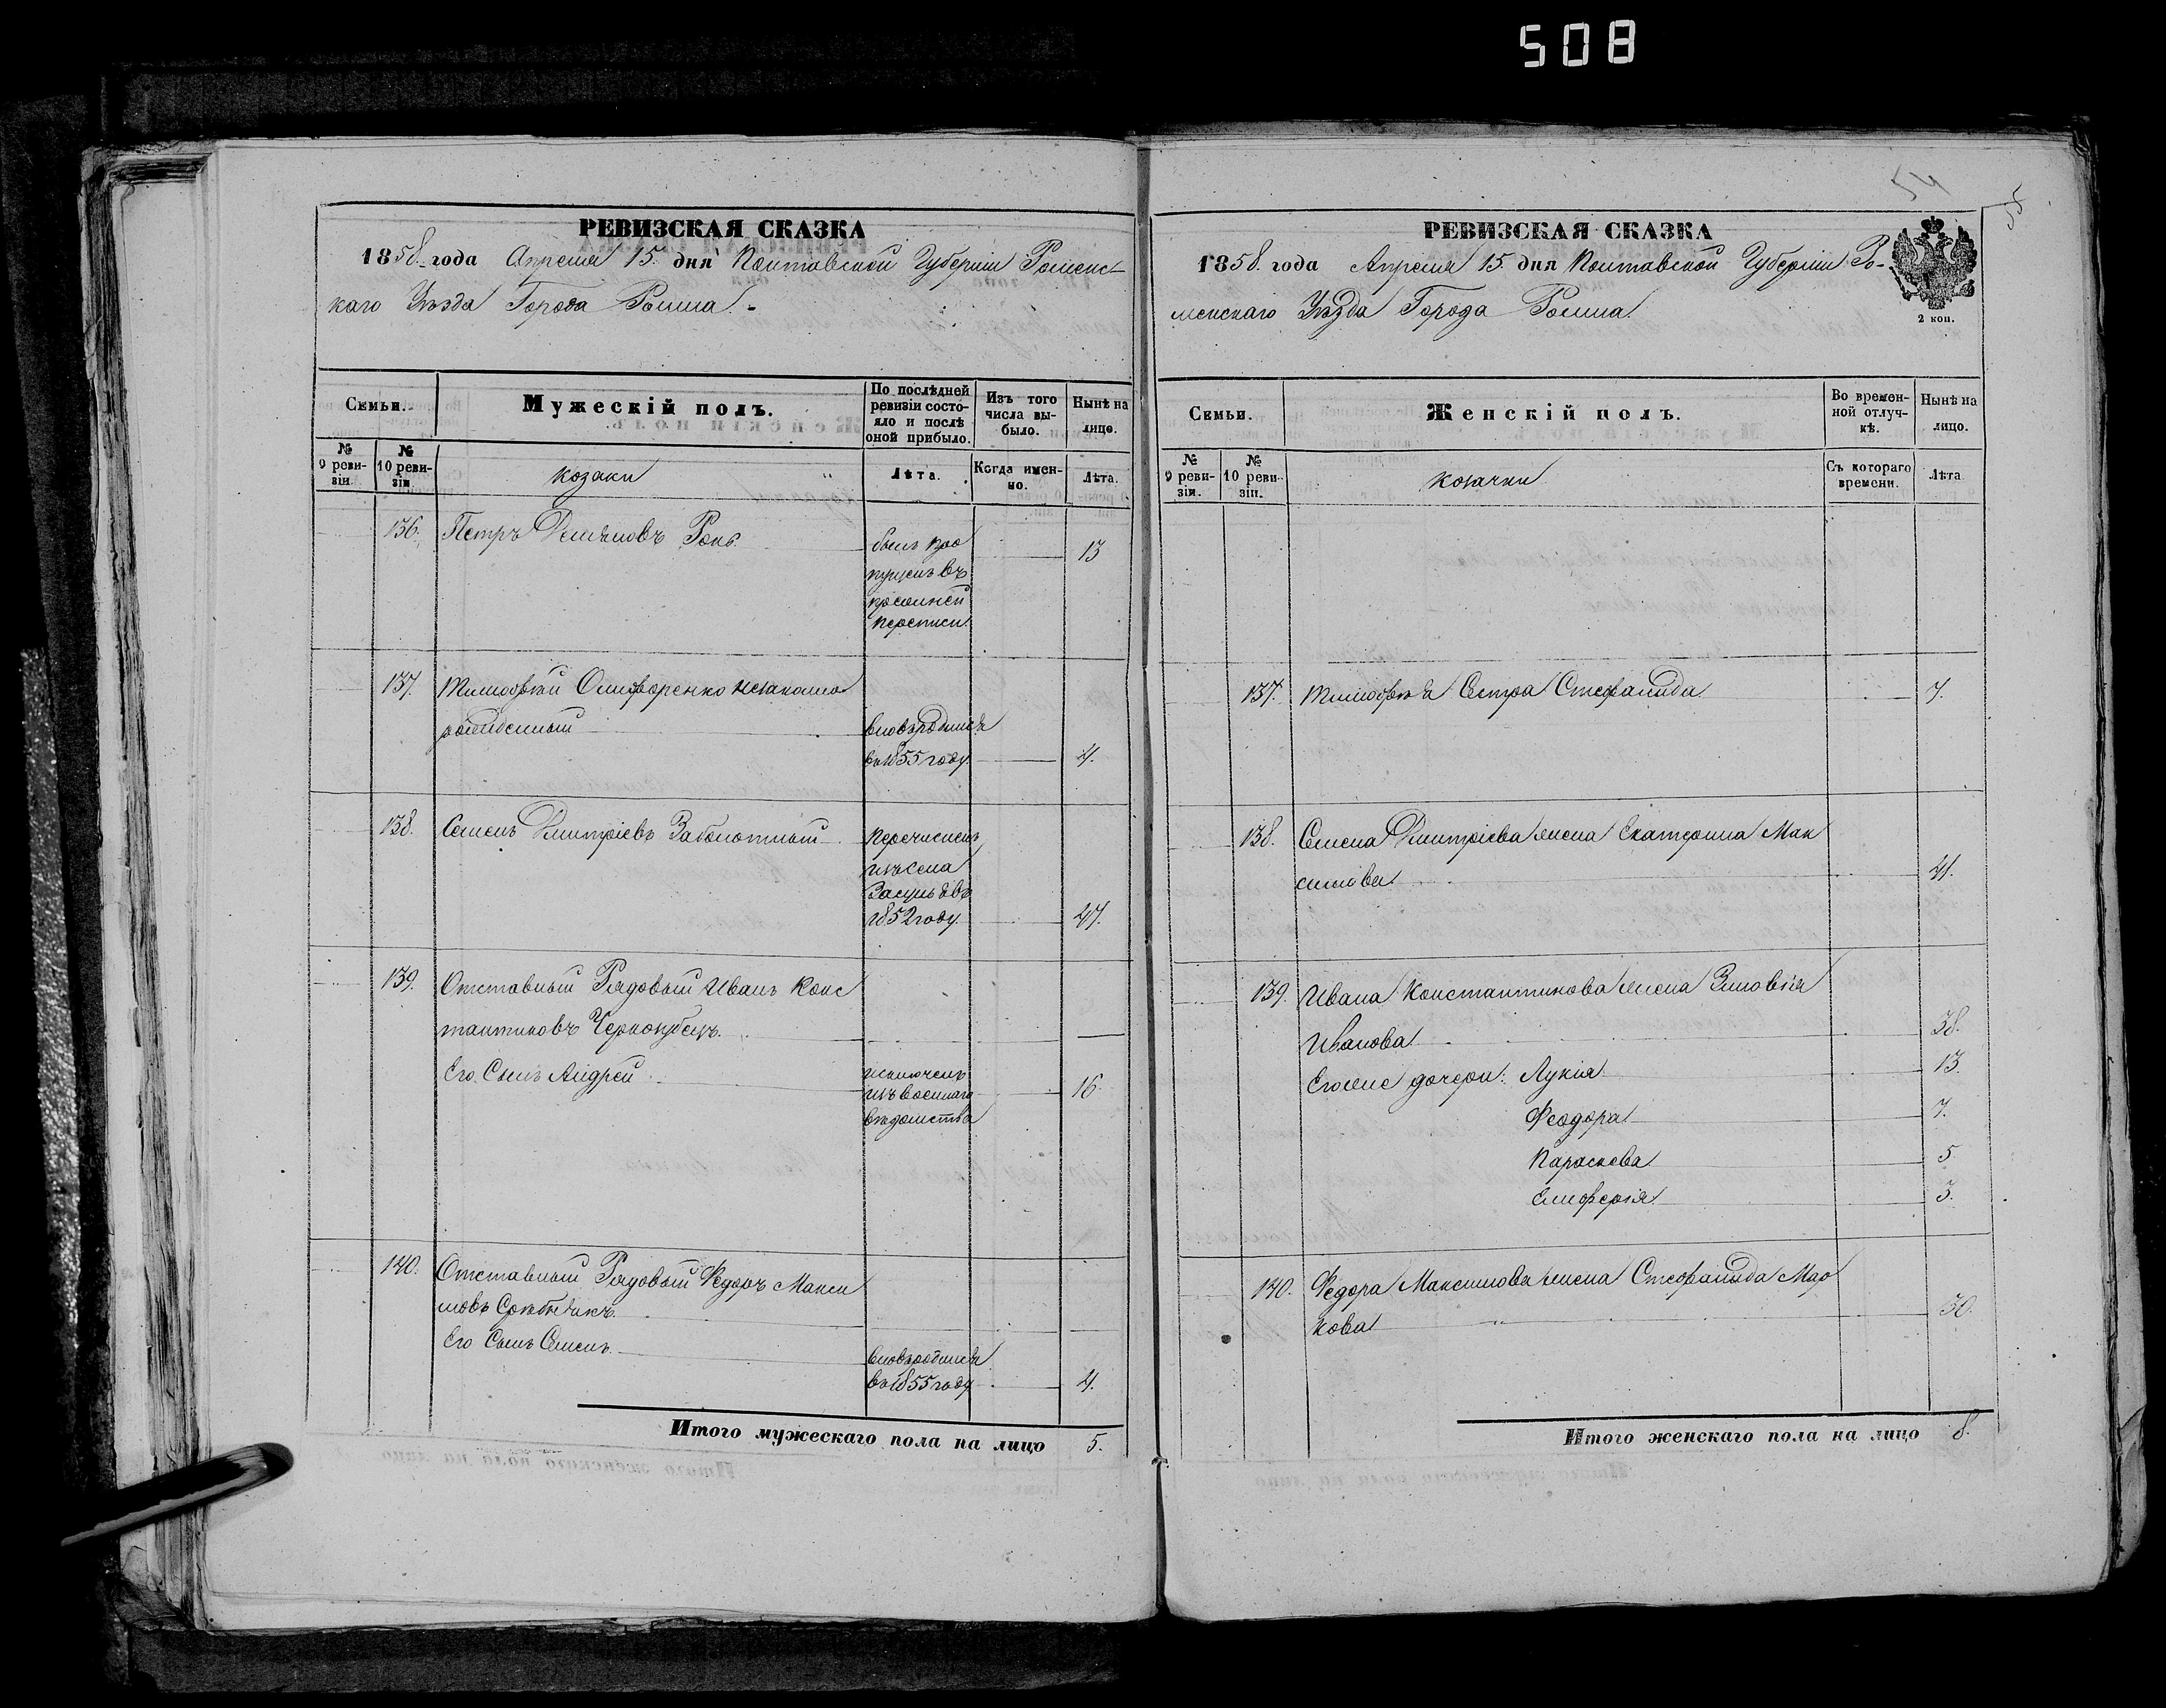 508
54
55
РЕВИЗСКАЯ СКАЗКА
1858 года Апреля 15 дня Полтавской Губерніи Роменс-
каго Уѣзда Города Ромна
Семьи.
Мужескій полъ.
По послѣдней ревизіи состояло и послѣ оной прибыло.
Изъ того числа выбыло.
Нынѣ на лицо.
№ 9 ревизіи.
№ 10 ревизіи.
козаки
Лѣта.
Когда именно.
Лѣта.
136. Петръ Демьяновъ
былъ про
13
пущенъ въ
переписи
137. Тимофѣй Олиференко незаконно
рожденный
вновь родился
въ 1855 году. 4.
138. Семенъ Дмитріевъ Заболотный
перечисленъ
изъ села
въ
1852 году. 47.
139. Отставный Рядовый Иванъ Конс
тантиновъ
Его Сынъ Андрей
исключенъ
изъ военнаго 16
вѣдомства
140. Отставный Рядовый Федоръ Макси
мовъ
Его Сынъ Семенъ
вновь родился
въ 1855 году 4.
Итого мужескаго пола на лицо 5.
РЕВИЗСКАЯ СКАЗКА
1858 года Апреля 15 дня Полтавской Губерніи Ро-
менскаго Уѣзда Города Ромна
2 коп.
Семьи.
Женскій полъ.
Во временной отлучкѣ.
Нынѣ на лицо.
№ 9 ревизіи.
№ 10 ревизіи.
козачки
Съ котораго времени.
Лѣта
137. Тимофѣя Сестра Стефанида 7.
138. Семена Дмитріева жена Екатерина Мак
симова 41.
139. Ивана Константинова жена Зиновія
Иванова 38.
Его же дочери: Лукія 13.
Феодора 7.
Параскева 5
Елиферія 3.
140. Федора Максимова жена Стефанида Мар
кова 30.
Итого женскаго пола на лицо 8.